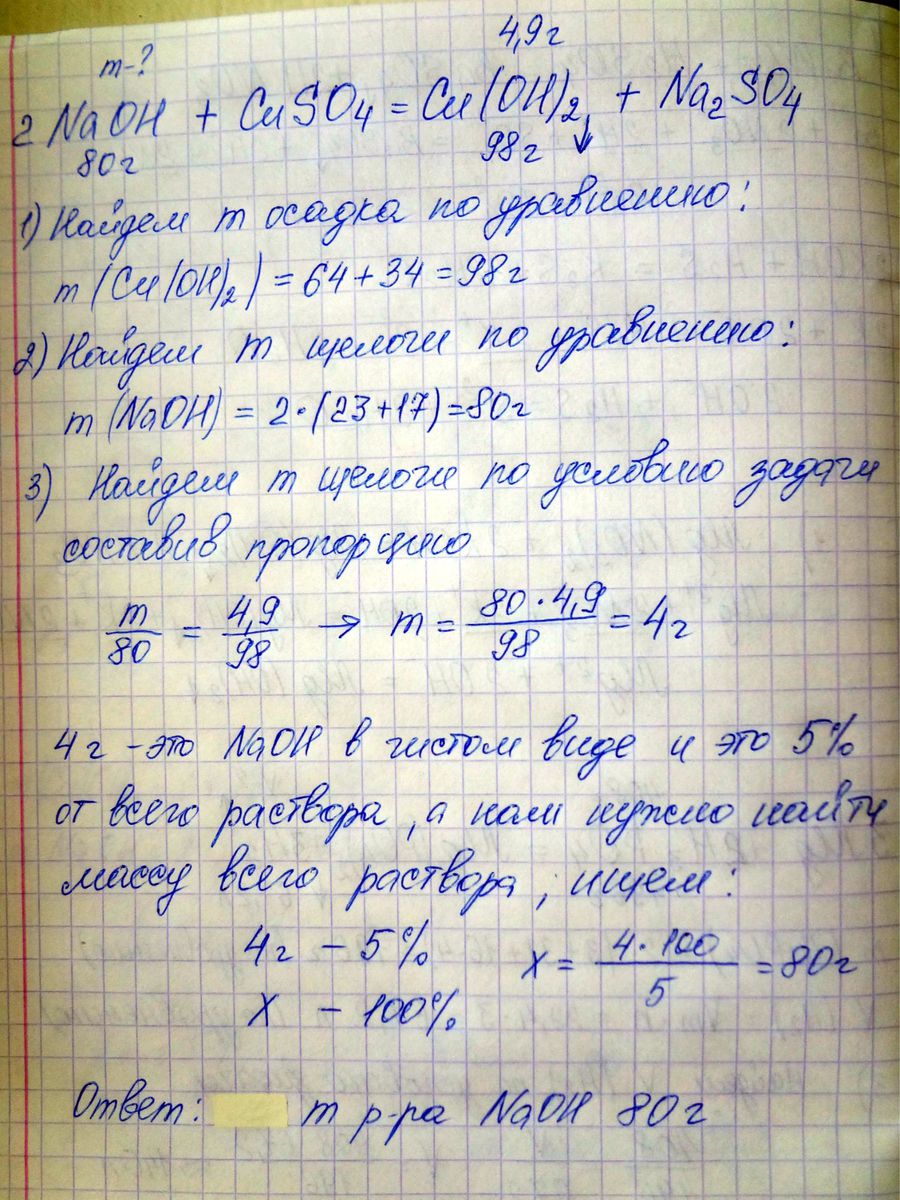 m-?
4,9г
2 NaOH + CuSO4 = Cu(OH)2↓ + Na2SO4
80г
98г
1) Найдем m осадка по уравнению:
m (Cu(OH)2) = 64 + 34 = 98г
2) Найдем m щелочи по уравнению:
m (NaOH) = 2·(23+17)=80г
3) Найдем m щелочи по условию задачи
составив пропорцию
m/80 = 4,9/98 → m = 80·4,9/98 = 4г
4г - это NaOH в чистом виде и это 5%
от всего раствора, а нам нужно найти
массу всего раствора, ищем:
4г - 5%
x - 100%
x = 4·100/5 = 80г
Ответ: m р-ра NaOH 80г